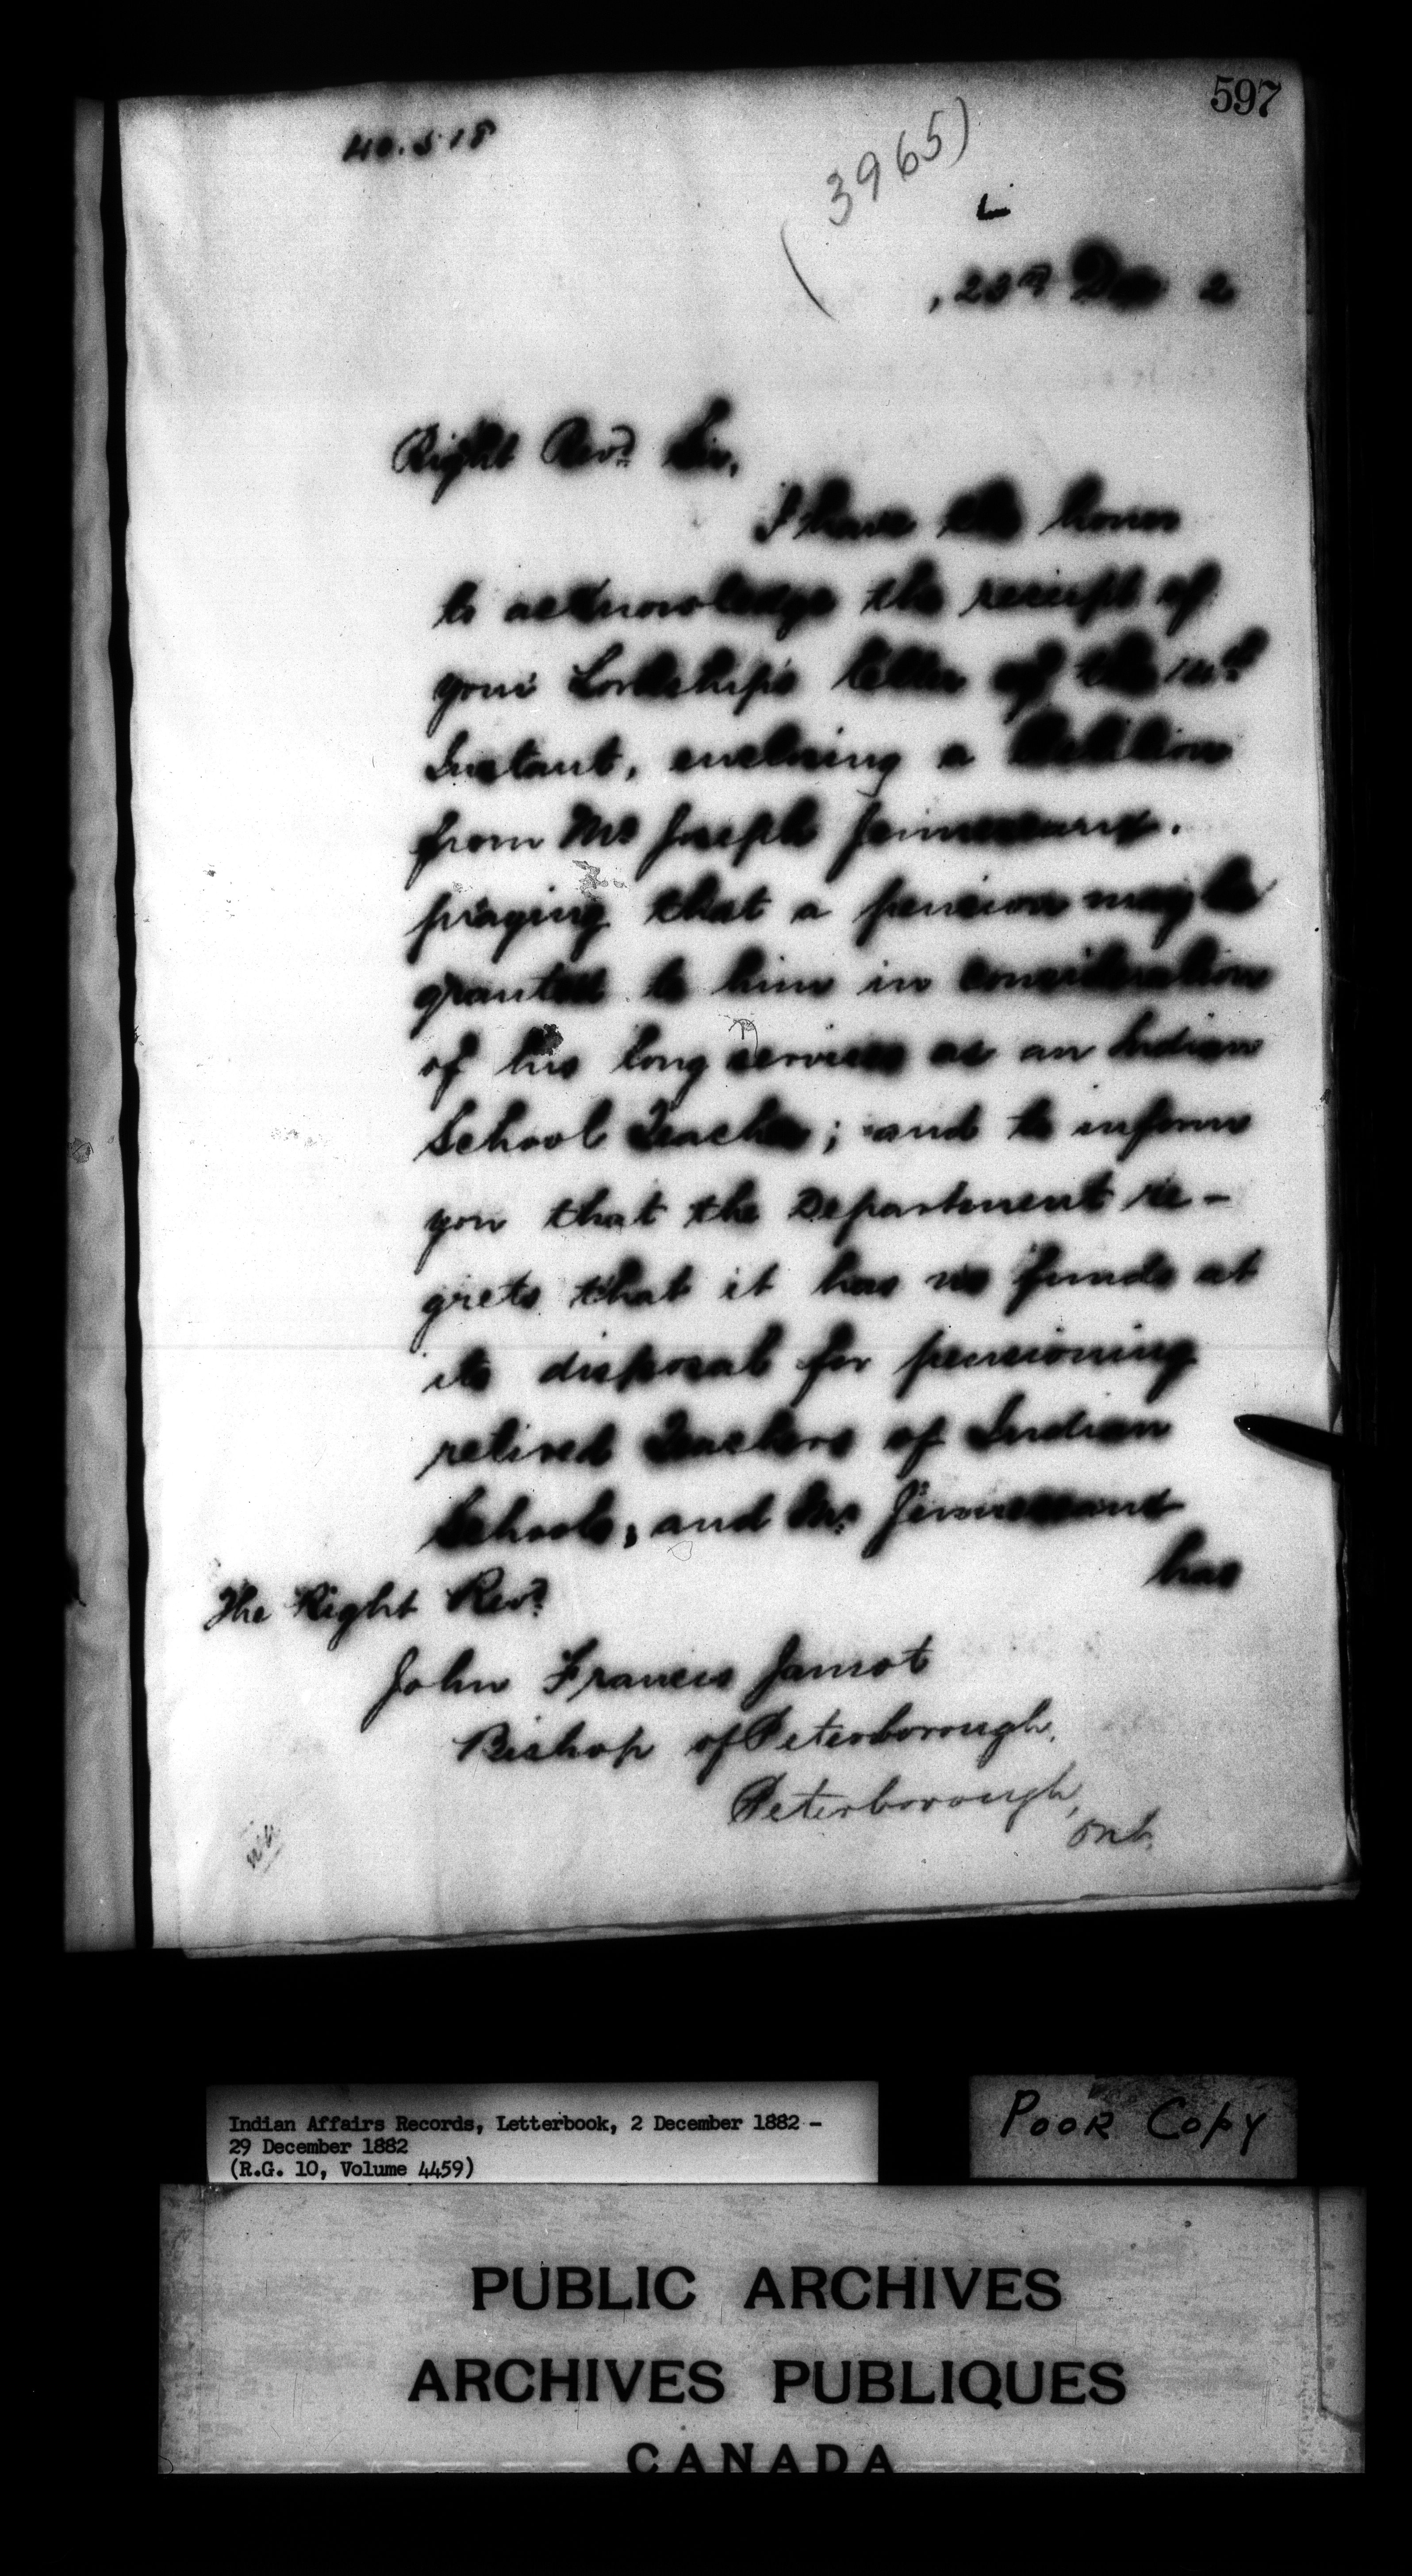 597
40.518
(3965)
L
, 23rd Dec 2
Right Revd Sir,
I have the honor
to acknowledge the receipt of
your Lordship's letter of the
Instant, enclosing a Petition
from Mr Joseph
praying that a pension may be
granted to him in consideration
of his long services as an Indian
School Teacher; and to inform
you that the Department re-
grets that it has no funds at
its disposal for pensioning
retired Teachers of Indian
Schools, and Mr.
has
The Right Revd
John Francis Jamot
Bishop of Peterborough,
Peterborough,
Ont.
Indian Affairs Records, Letterbook, 2 December 1882 -
29 December 1882
(R.G. 10, Volume 4459)
Poor Copy
PUBLIC ARCHIVES
ARCHIVES PUBLIQUES
CANADA